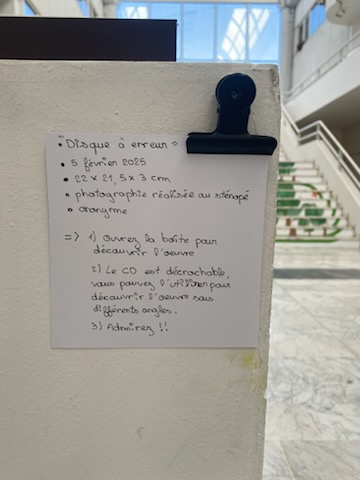 "Disque à erreur"
• 5 février 2025
• 22 x 21,5 x 3 cm
• photographie réalisée au sténopé
• anonyme
=> 1) Ouvrez la boîte pour
découvrir l'oeuvre
2) Le CD est décrochable,
vous pouvez l'utiliser pour
découvrir l'oeuvre sous
différents angles.
3) Admirez !!